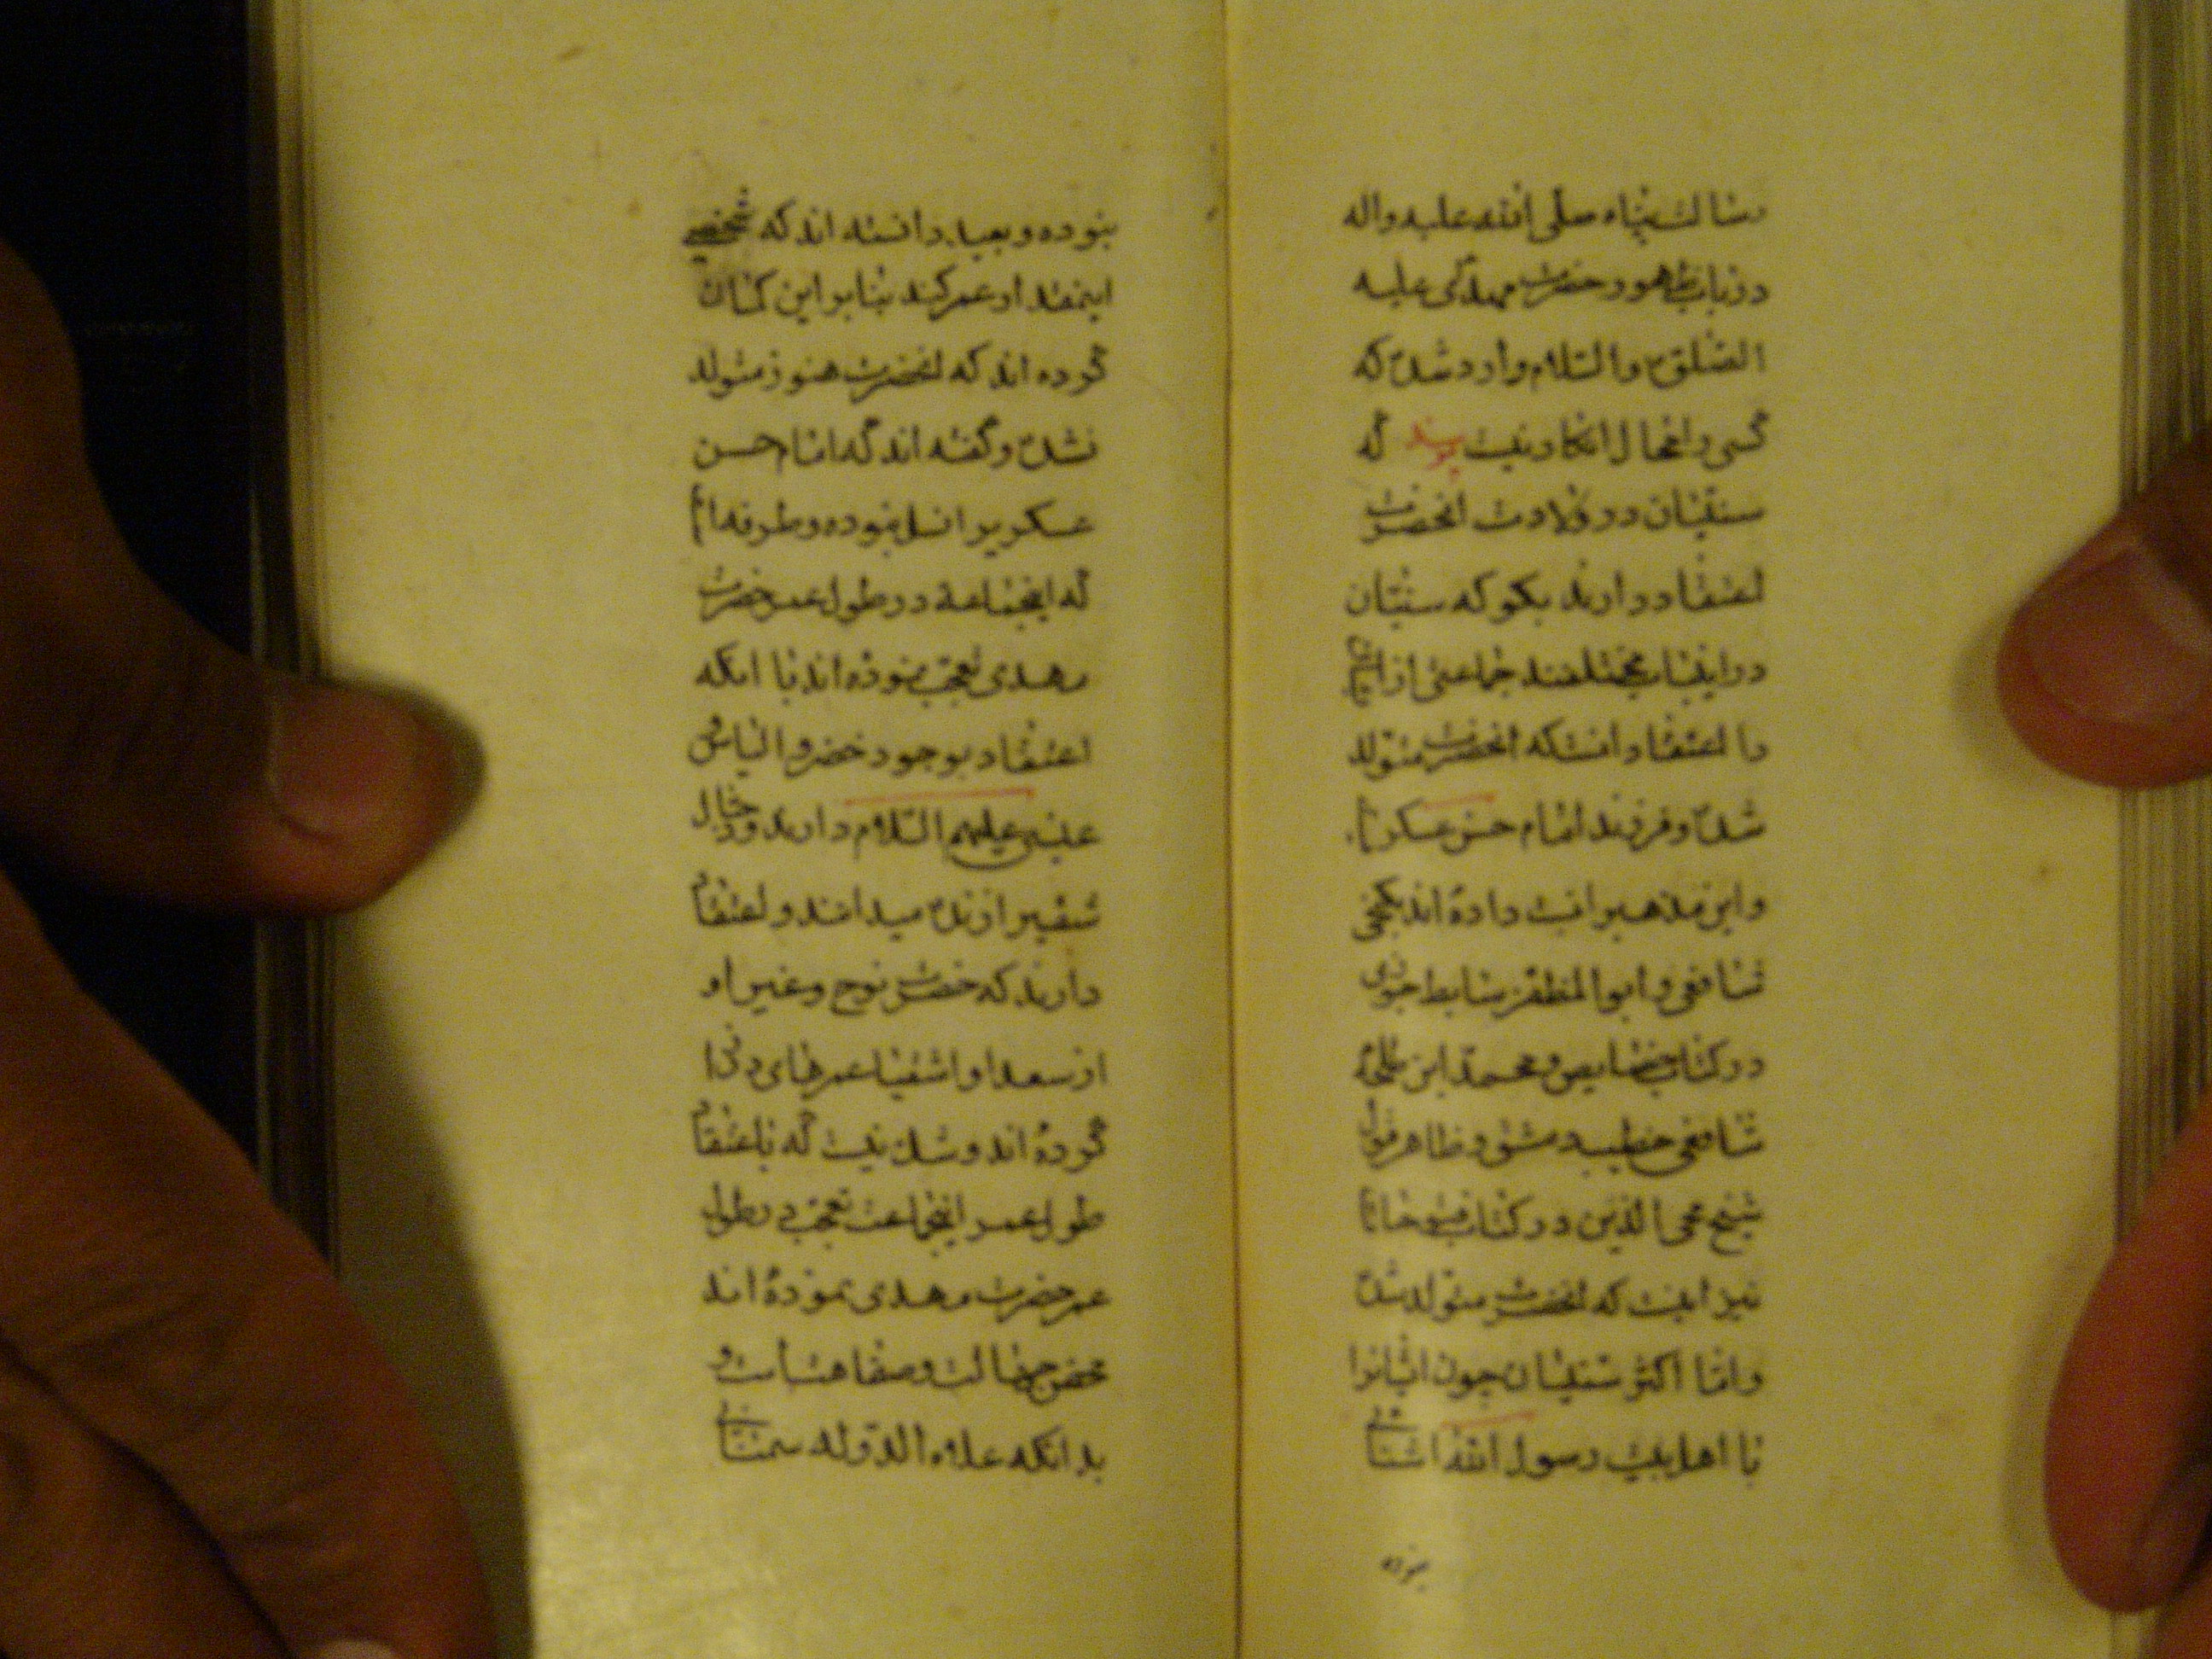 رسالت پناه صلی الله علیه واله
در باب ظهور حضرت مهدی علیه
الصلوة والسلام وارد شده که
کسی را مجال انکار نیست پرسند که
سنیان در ولادت انحضرت
اعتقاد دارند بگو که سنیان
در اینباب مختلفند جماعتی از ایشان
را اعتقاد انستکه انحضرت متولد
شده و فرزند امام حسن عسکریا
واین مذهب را نسبت داده اند بکنجی
شافعی و ابوالمظفر سابط جوزی
در کتاب خصایص و محمد ابن طلحه
شافعی خطیب دمشق و ظاهر قول
شیخ محی الدین در کتاب فتوحات
نیز اینست که انحضرت متولد شده
واما اکثر سنیان چون ایشانرا
با اهل بیت رسول الله اشنائی
نبوده
نبوده و بعید دانسته اند که شخصی
اینمقدار عمر کند بنابر این کمان
کرده اند که انحضرت هنوز متولد
نشده و گفته اند که امام حسن
عسکریرا نسل نبوده و طرفه ان
که اینجماعة در طول عمر حضرت
مهدی تعجب نموده اند با انکه
اعتقاد بوجود خضر و الیاس و
عیسی علیهم السلام دارند و دجال
شقیرا زنده میدانند و اعتقاد
دارند که حضرت نوح و غیر او
از سعدا و اشقیا عمرهای دراز
کرده اند و شک نیست که با اعتقاد
طول عمر اینجماعت تعجب در طول
عمر حضرت مهدی نموده اند
محض جهالت و صفاهتست و
بدانکه علاء الدوله سمنانی